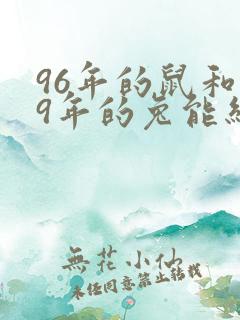 96年的鼠和
9年的兔能
無花小仙
未经同意禁止转载